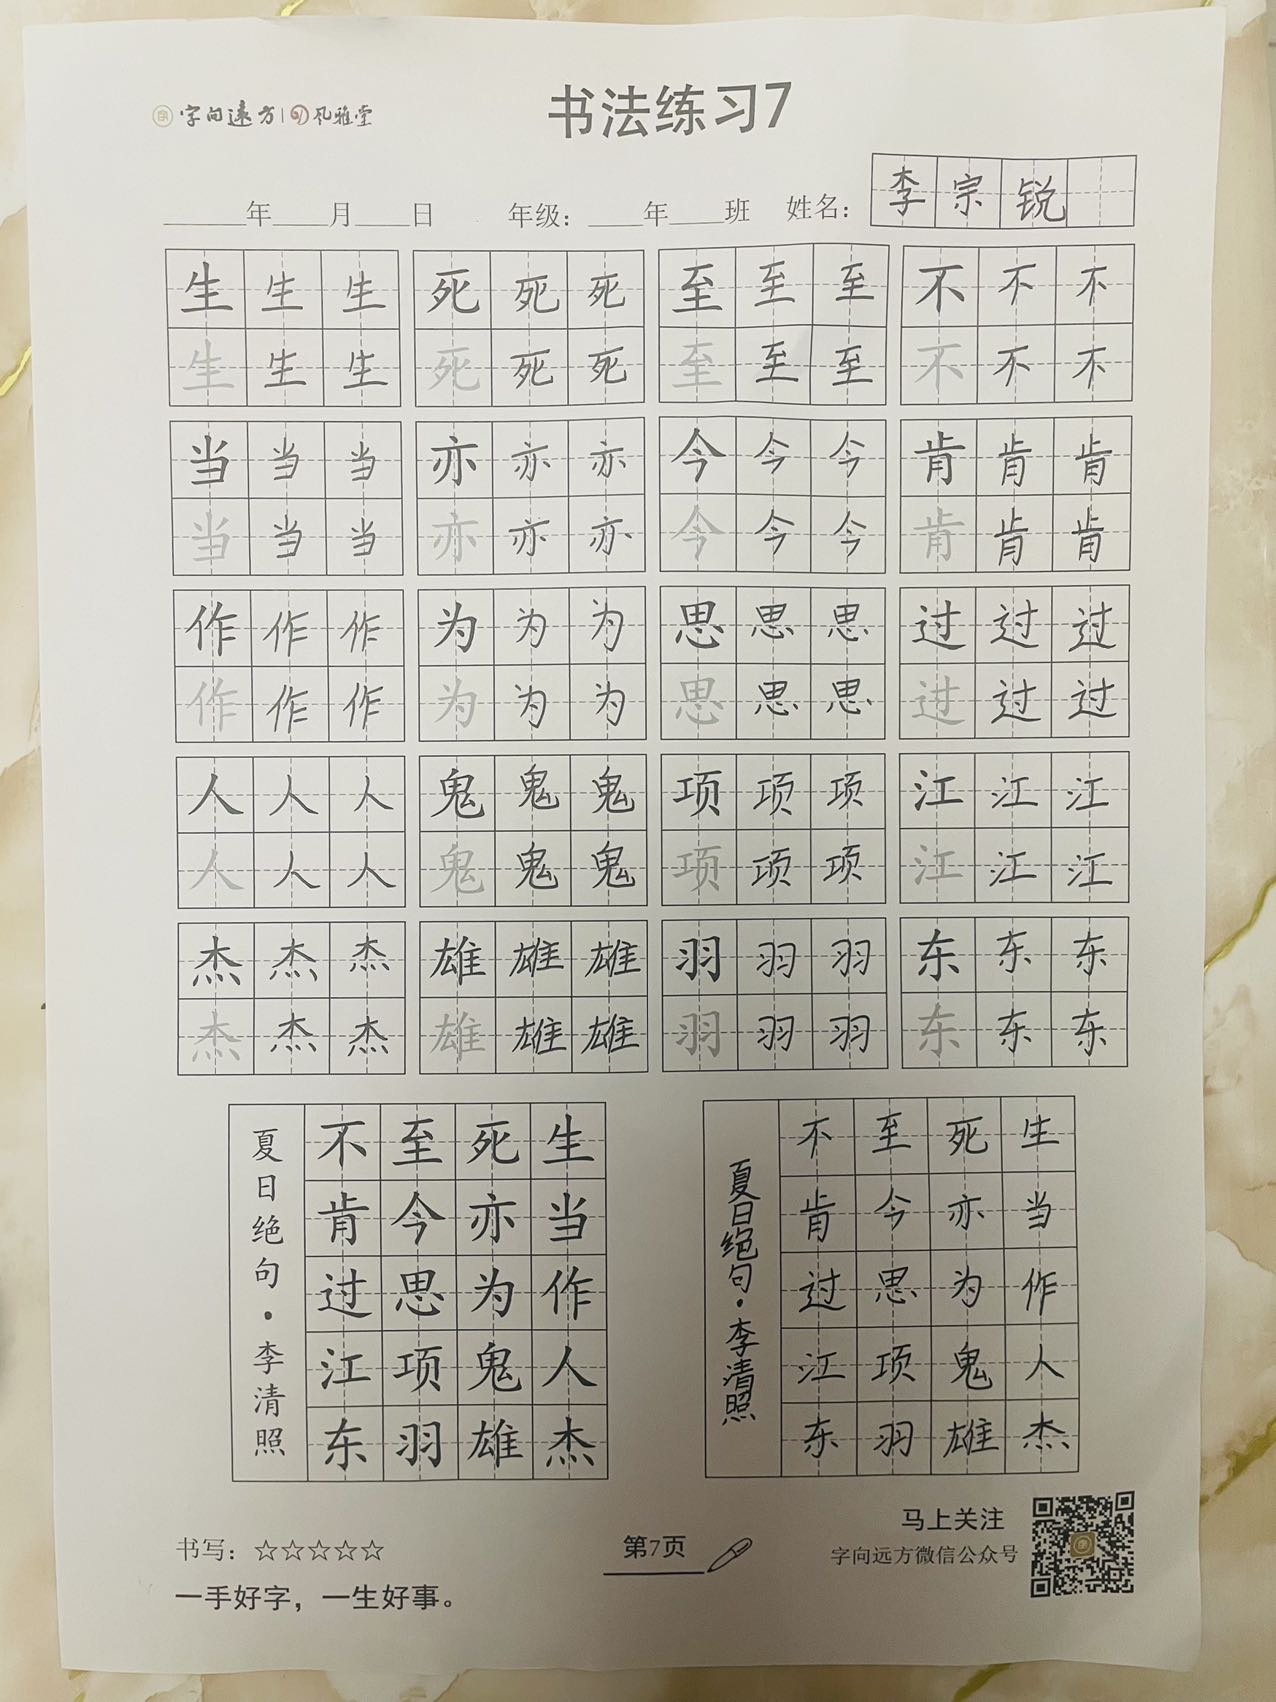 字向远方 风雅堂
书法练习7
年 月 日 年级： 年 班 姓名：李宗锐
生生生 死死死 至至至 不不不
生生生 死死死 至至至 不不不
当当当 亦亦亦 今今今 肯肯肯
当当当 亦亦亦 今今今 肯肯肯
作作作 为为为 思思思 过过过
作作作 为为为 思思思 过过过
人人人 鬼鬼鬼 项项项 江江江
人人人 鬼鬼鬼 项项项 江江江
杰杰杰 雄雄雄 羽羽羽 东东东
杰杰杰 雄雄雄 羽羽羽 东东东
生当作人杰
死亦为鬼雄
至今思项羽
不肯过江东
夏日绝句·李清照
生当作人杰
死亦为鬼雄
至今思项羽
不肯过江东
夏日绝句·李清照
书写：☆☆☆☆☆
一手好字，一生好事。
第7页
马上关注
字向远方微信公众号